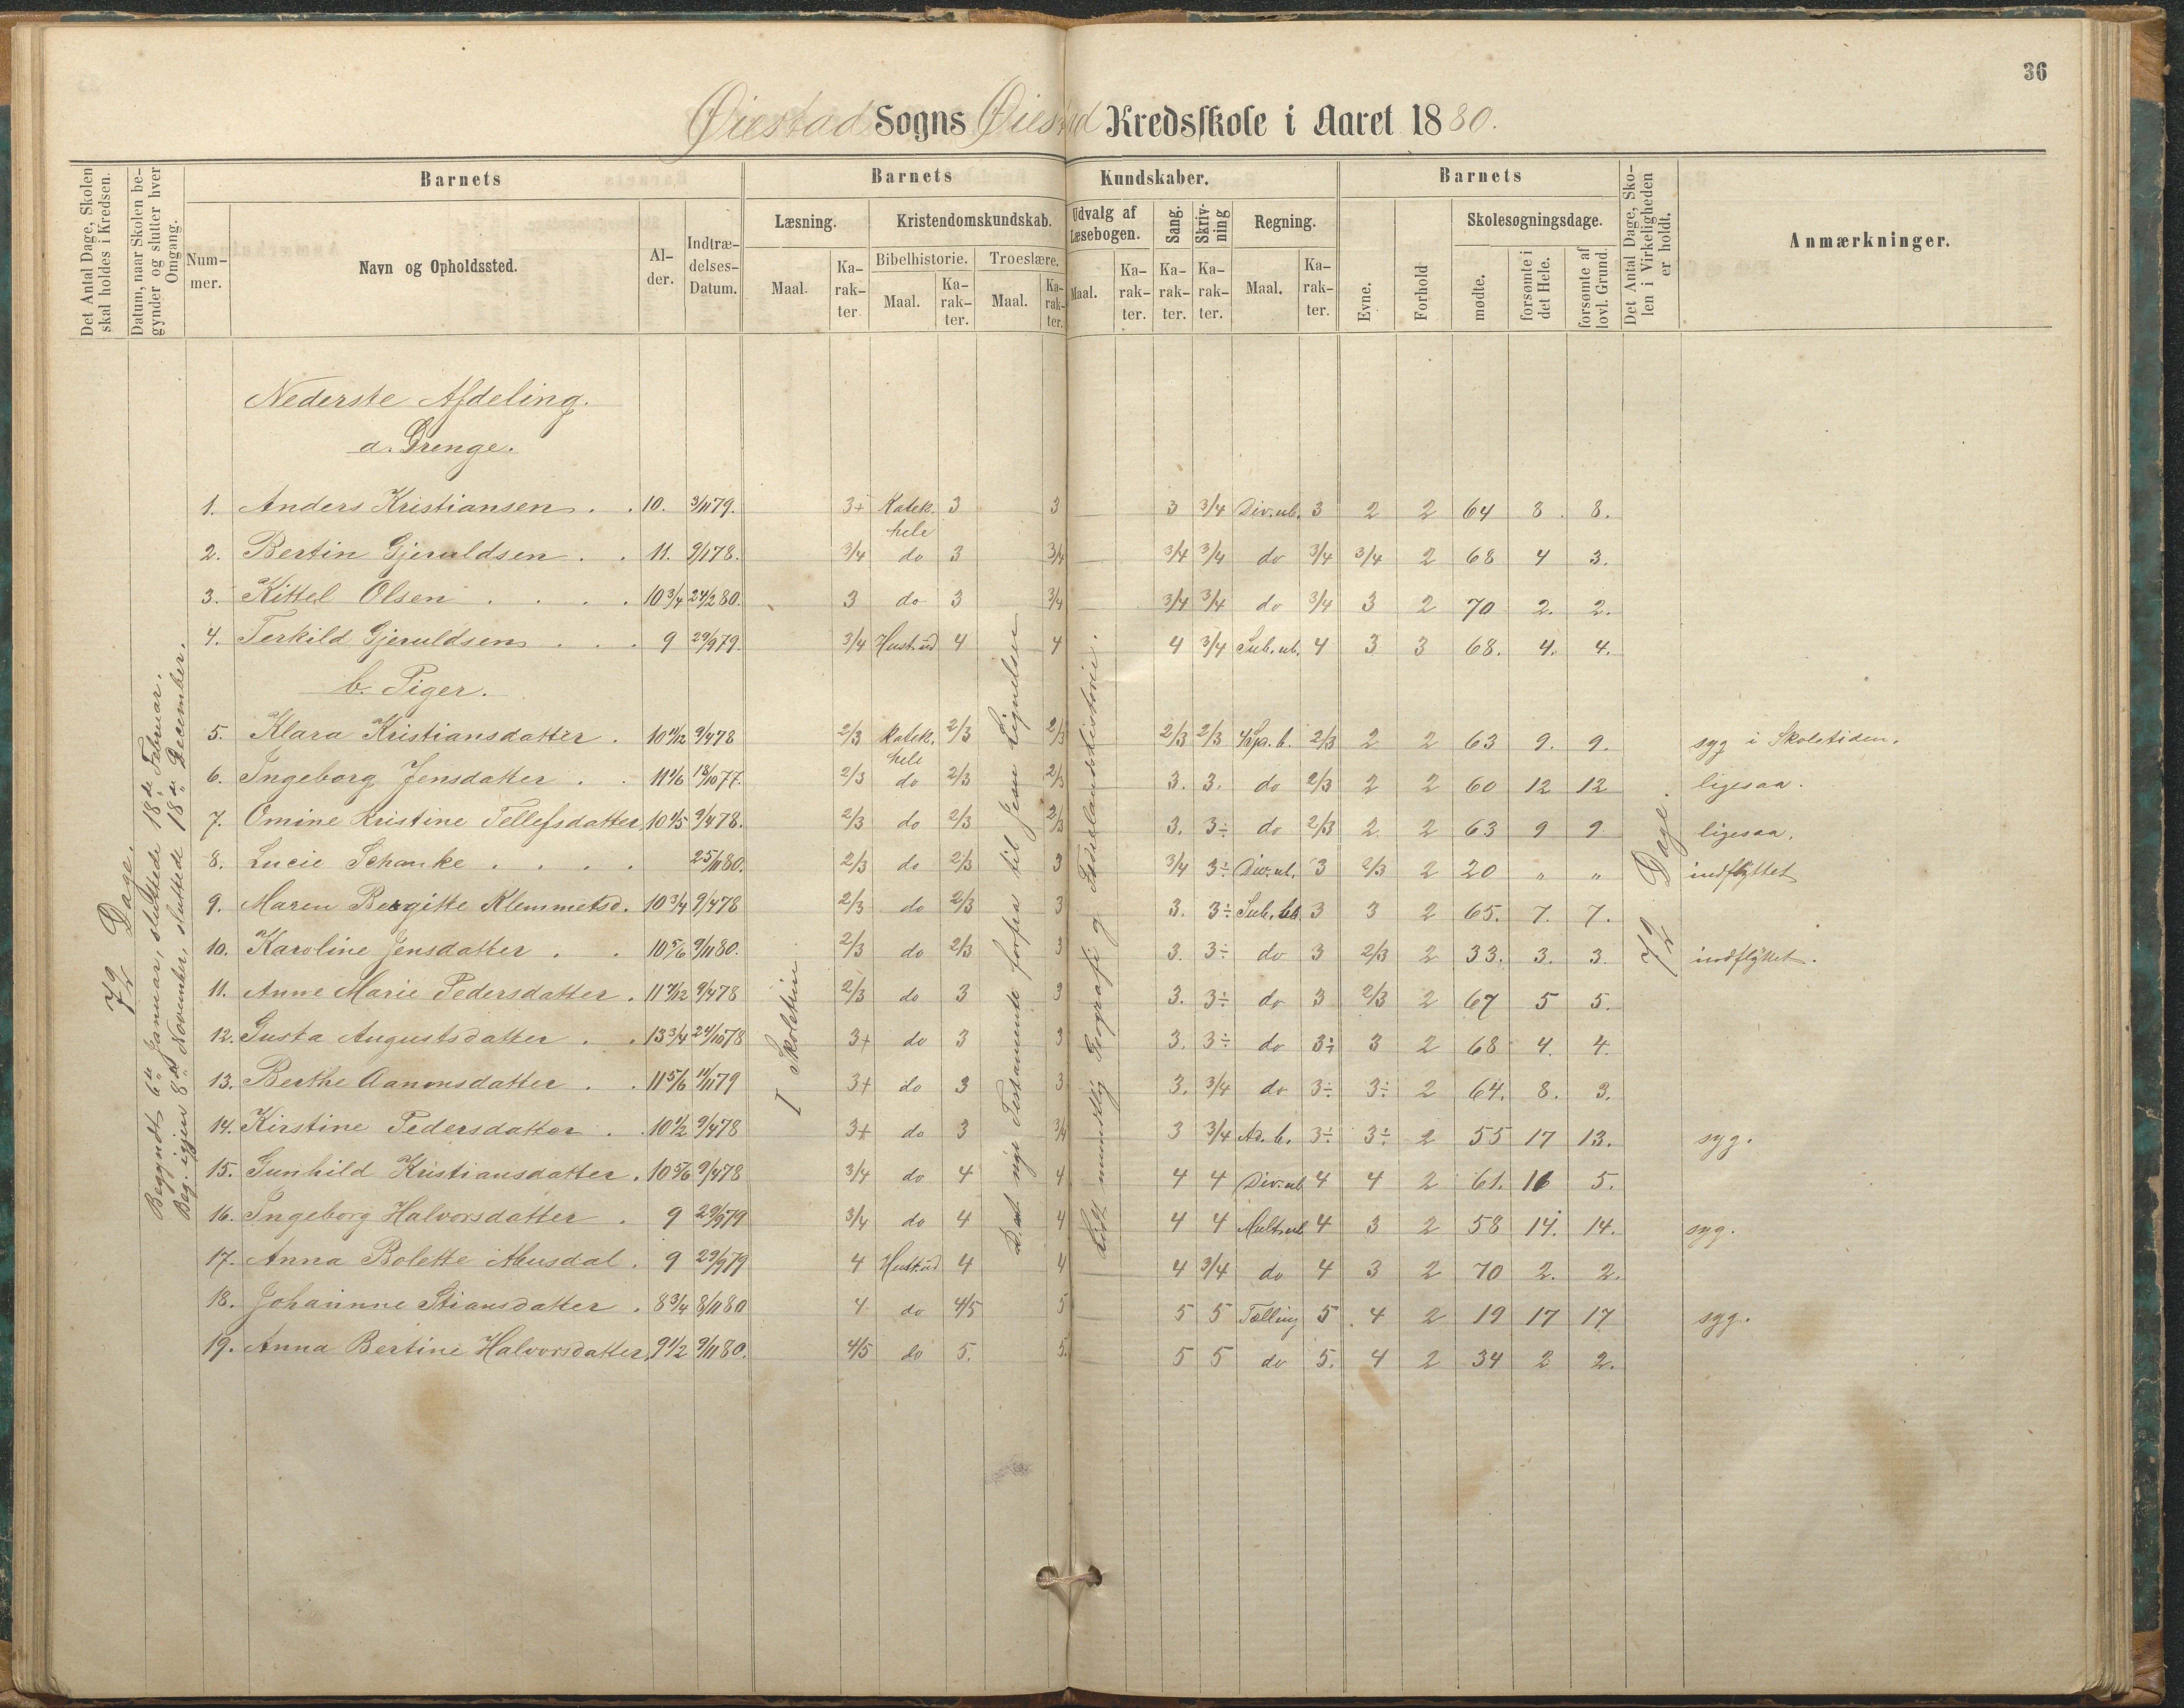 36
Øiestad Sogns Øiestad Kredsskole i Aaret 1880.
Det Antal Dage, Skolen skal holdes i Kredsen.
Datum, naar Skolen begynder og slutter hver Omgang.
Barnets
Nummer.
Navn og Opholdssted.
Alder.
Indtrædelses-Datum.
Barnets Kundskaber.
Læsning.
Maal.
Karakter
Kristendomskundskab.
Bibelhistorie.
Maal.
Karakter.
Troeslære.
Maal.
Karakter.
Udvalg af Læsebogen.
Maal.
Karakter.
Sang.
Karakter.
Skrivning
Karakter.
Regning.
Maal.
Karakter.
Barnets
Evne.
Forhold
Skolesøgningsdage.
mødte.
forsømte i det Hele.
forsømte af lovl. Grund.
Det Antal Dage, Skolen i Virkeligheden er holdt.
Anmærkninger.
72 Dage.
Begyndt 6te Januar, sluttede 18de Februar.
Beg. igjen 8de November, sluttede 18de December.
Nederste Afdeling.
a. Drenge.
1. Anders Kristiansen . . 10. 3/11 79. 3+ Katek. hele 3 3 3 3/4 Div. ub. 3 2 2 64 8. 8.
2. Bertin Gjeruldsen . . 11. 9/1 78. 3/4 do 3 3/4 3/4 3/4 do 3/4 3/4 2 68 4 3.
3. Kittel Olsen . . . . 10 3/4 24/2 80. 3 do 3 3/4 3/4 3/4 do 3/4 3 2 70 2. 2.
4. Terkild Gjeruldsen . . . 9 29/9 79. 3/4 4 4 4 3/4 Sub. ub. 4 3 3 68. 4. 4.
b. Piger.
5. Klara Kristiansdatter . 10 11/12 9/4 78 2/3 Katek. hele 2/3 2/3 2/3 2/3 2/3 2 2 63 9. 9. syg i Skoletiden.
6. Ingeborg Jensdatter . . 11 1/6 18/10 77. 2/3 do 2/3 2/3 3. 3. do 2/3 2 2 60 12 12 ligesaa.
7. Omine Kristine Tellefsdatter 10 4/5 9/4 78. 2/3 do 2/3 2/3 3. 3÷ do 2/3 2 2 63 9 9 ligesaa.
8. Lucie Schanke . . . . 25/11 80. 2/3 do 2/3 3 3/4 3÷ Div. ub. 3 2/3 2 20 " " indflyttet
9. Maren Bergitte Klemmetsd. 10 3/4 9/4 78 2/3 do 2/3 3 3. 3÷ Sub. ub. 3 3 2 65. 7. 7.
10. Karoline Jensdatter . . 10 5/6 9/11 80. 2/3 do 2/3 3 3. 3÷ do 3 2/3 2 33. 3. 3. indflyttet.
11. Anne Marie Pedersdatter . 11 7/12 9/4 78 2/3 do 3 3 3. 3÷ do 3 2/3 2 67 5 5.
12. Gusta Augustsdatter . . 13 3/4 24/10 78 3+ do 3 3 3. 3÷ do 3÷ 3 2 68 4. 4.
13. Berthe Aanonsdatter . . 11 5/6 11/11 79 3+ do 3 3 3. 3/4 do 3÷ 3÷ 2 64. 8. 3.
14. Kirstine Pedersdatter . . 10 1/2 9/4 78 3+ do 3 3/4 3 3/4 Ad. b. 3÷ 3÷ 2 55 17 13. syg.
15. Gunhild Kristiansdatter . 10 5/6 9/4 78 3/4 do 4 4 4 4 Div. ub 4 4 2 61. 11 5.
16. Ingeborg Halvorsdatter . 9 29/9 79 3/4 do 4 4 4 4 Mult. ub 4 3 2 58 14. 14. syg.
17. Anna Bolette . 9 29/9 79 4 4 4 4 3/4 do 4 3 2 70 2. 2.
18. Johannne Stiansdatter . 8 3/4 8/11 80 4 do 4/5 5 5 5 Tælling 5 4 2 19 17 17 syg.
19. Anna Bertine Halvorsdatter. 9 1/2 9/11 80. 4/5 do 5. 5. 5 5 do 5. 4 2 34 2 2.
I Skoletim
Det nye Testamente forfra til Jesu Lignelser
Lidt mundtlig Geografi og Fædrelandshistorie.
72 Dage.